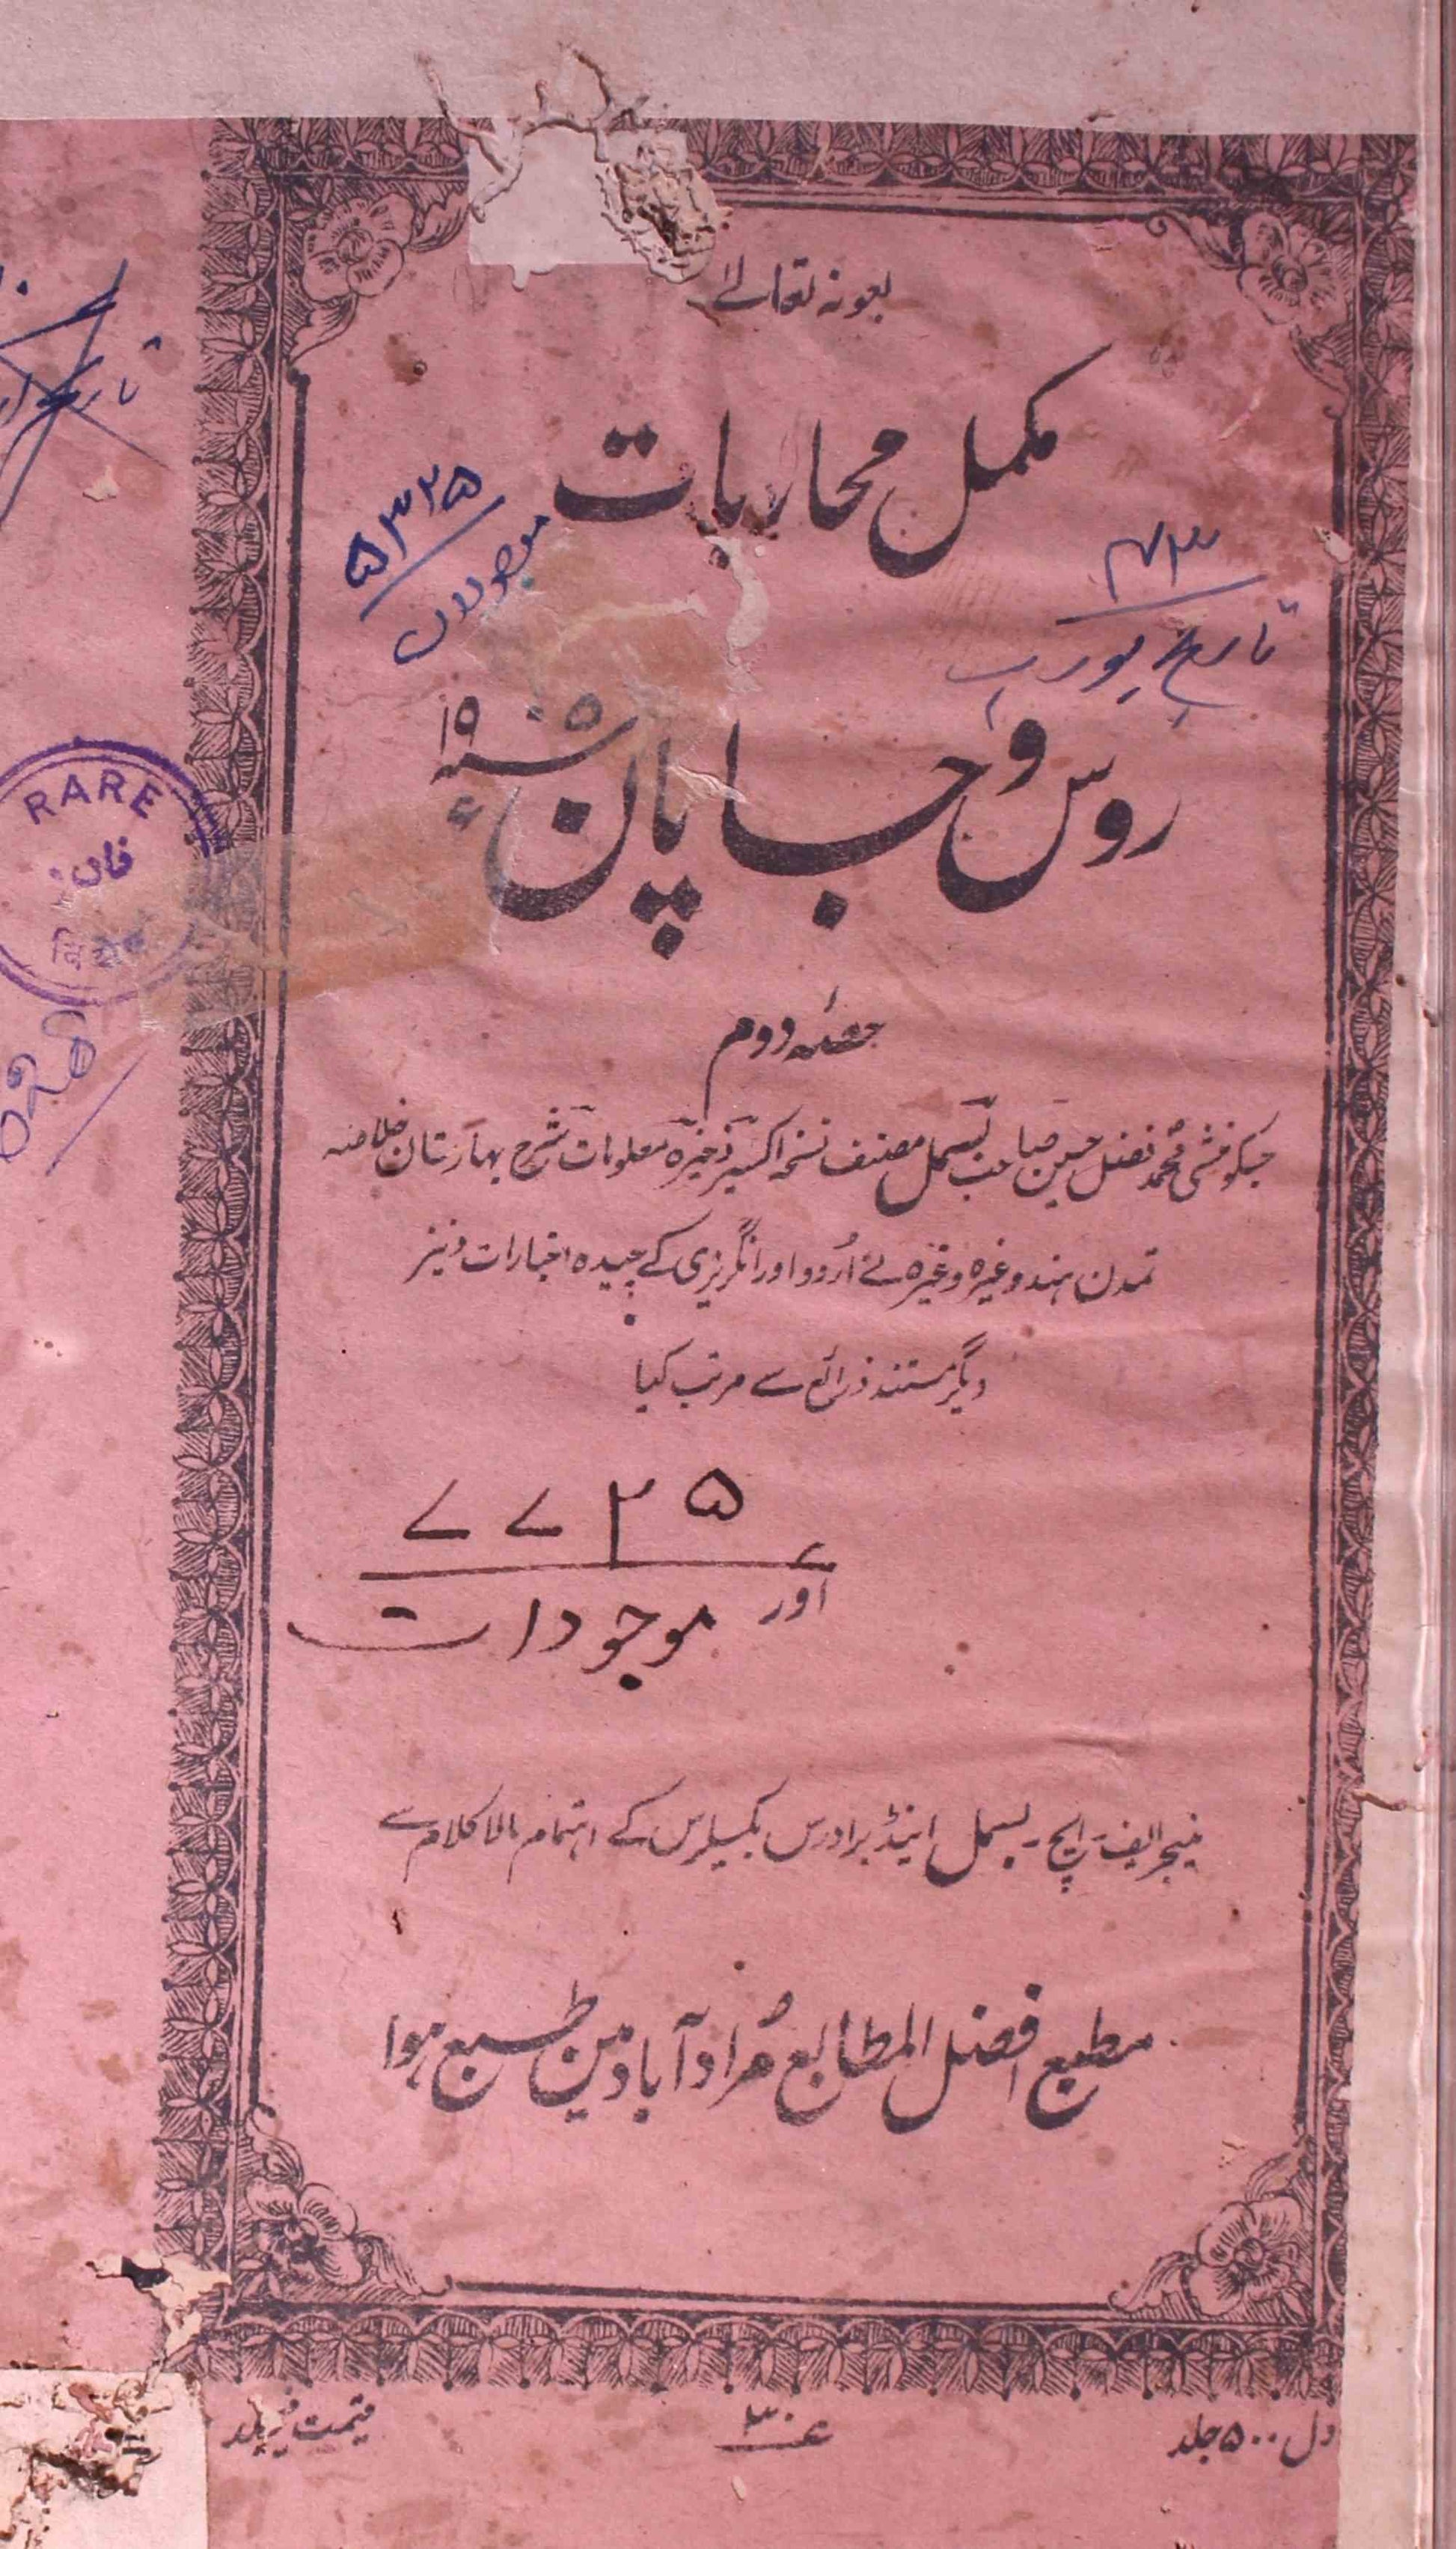 بعونہ تعالےٰ
مکمل محاربات
۵۳۲۵
۷۱۳
تاریخ یورپ
روس و جاپان سنہ ۱۹۰۵ء
حصہ دوم
جسکو منشی محمد فضل حسین صاحب بسمل مصنف نسخہ اکسیر ذخیرہ معلومات شرح بہارستان خلاصہ
تمدن ہند وغیرہ وغیرہ نے اُردو اور انگریزی کے چیدہ اخبارات و نیز
دیگر مستند ذرائع سے مرتب کیا
۷۷۲۵
اور
موجودات
منیجر ایف۔ ایچ۔ بسمل اینڈ برادرس بکسیلرس کے اہتمام بالاکلام سے
مطبع افضل المطابع مُرادآباد مین طبع ہوا
ول ۵۰۰ جلد
قیمت فیجلد
RARE